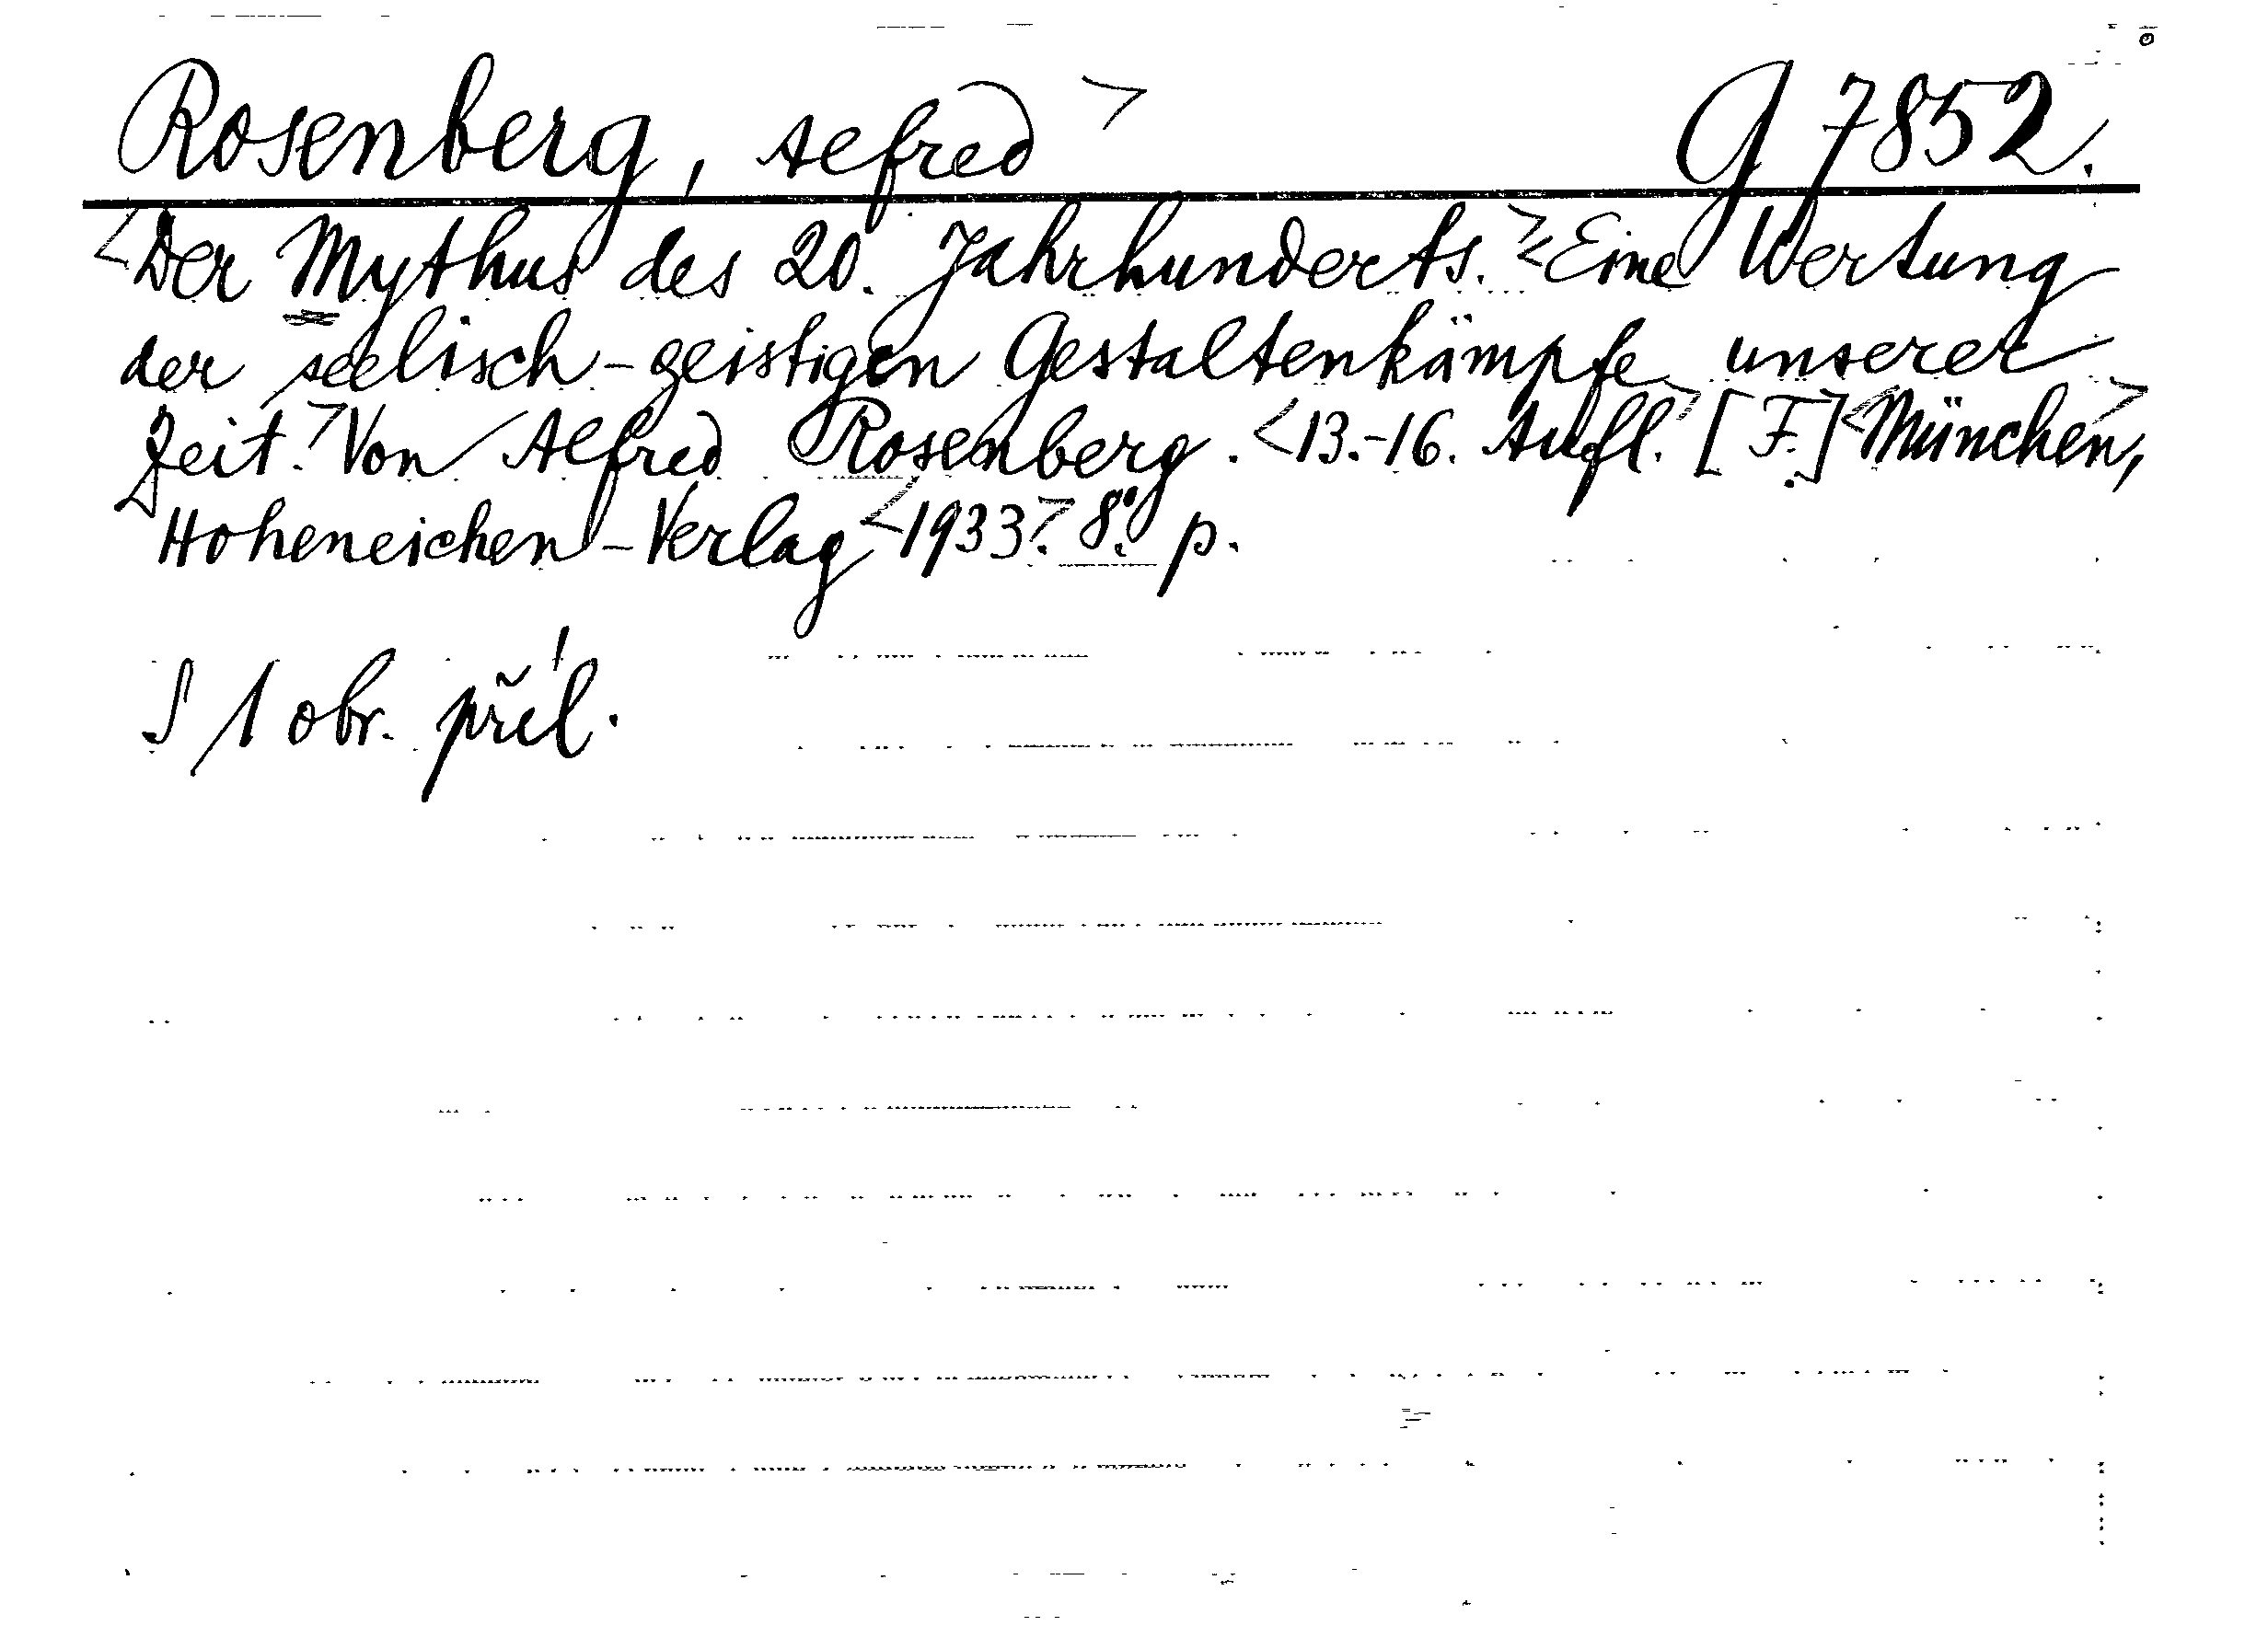 Rosenberg, Alfred> G 7852.
<Der Mythus des 20. Jahrhunderts.><Eine Wertung
der seelisch-geistigen Gestaltenkämpfe unserer
Zeit.> Von Alfred Rosenberg. <13.-16. Aufl.> [F.] <München,>
Hoheneichen-Verlag <1933>. 8°. p.
S 1 obr. příl.